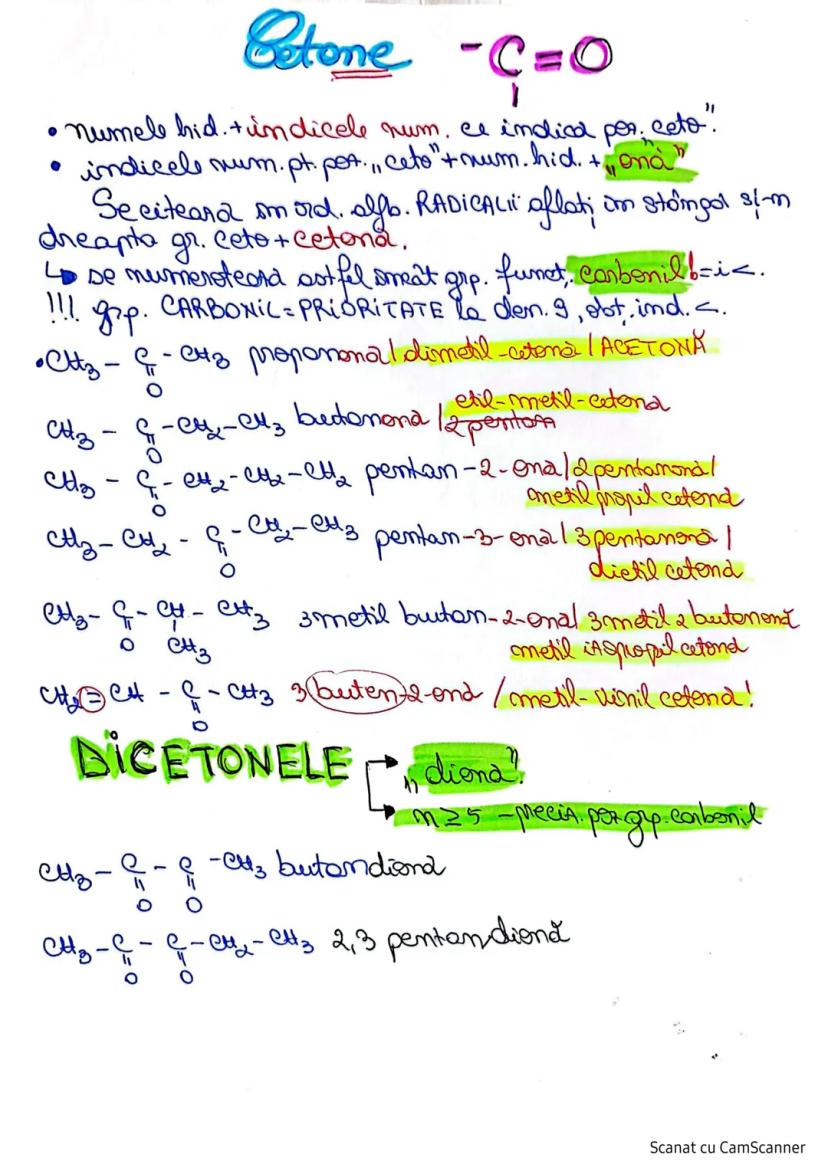 Cetone -C=O
• numele hid. + indicele num. ce indică poz. „ceto”.
• indicele num. pt. poz. „ceto” + num. hid. + „onă”
Se citează în ord. alfb. RADICALii aflați în stânga și-n
dreapta gr. ceto + cetonă.
↳ se numerotează astfel încât grp. funcț. carbonil! = i<.
!!! grp. CARBONiL = PRiORiTATE la den. și obț. ind. <.
• CH3 - C - CH3 propanonă / dimetil-cetonă / ACETONĂ
O
CH3 - C - CH2 - CH3 butanonă / etil-metil-cetonă
O
CH3 - C - CH2 - CH2 - CH2 pentan-2-onă / 2pentanonă /
O metil propil cetonă
CH3 - CH2 - C - CH2 - CH3 pentan-3-onă / 3pentanonă /
O dietil cetonă
CH3 - C - CH - CH3 3metil butan-2-onă / 3metil 2 butanonă
O CH3 metil izopropil cetonă
CH2 = CH - C - CH3 3 buten-2-onă / metil-vinil cetonă!
O
DiCETONELE „dionă”.
n ≥ 5 - preciz. poz. grp. carbonil
CH3 - C - C - CH3 butandionă
O O
CH3 - C - C - CH2 - CH3 2,3 pentandionă
O O
Scanat cu CamScanner